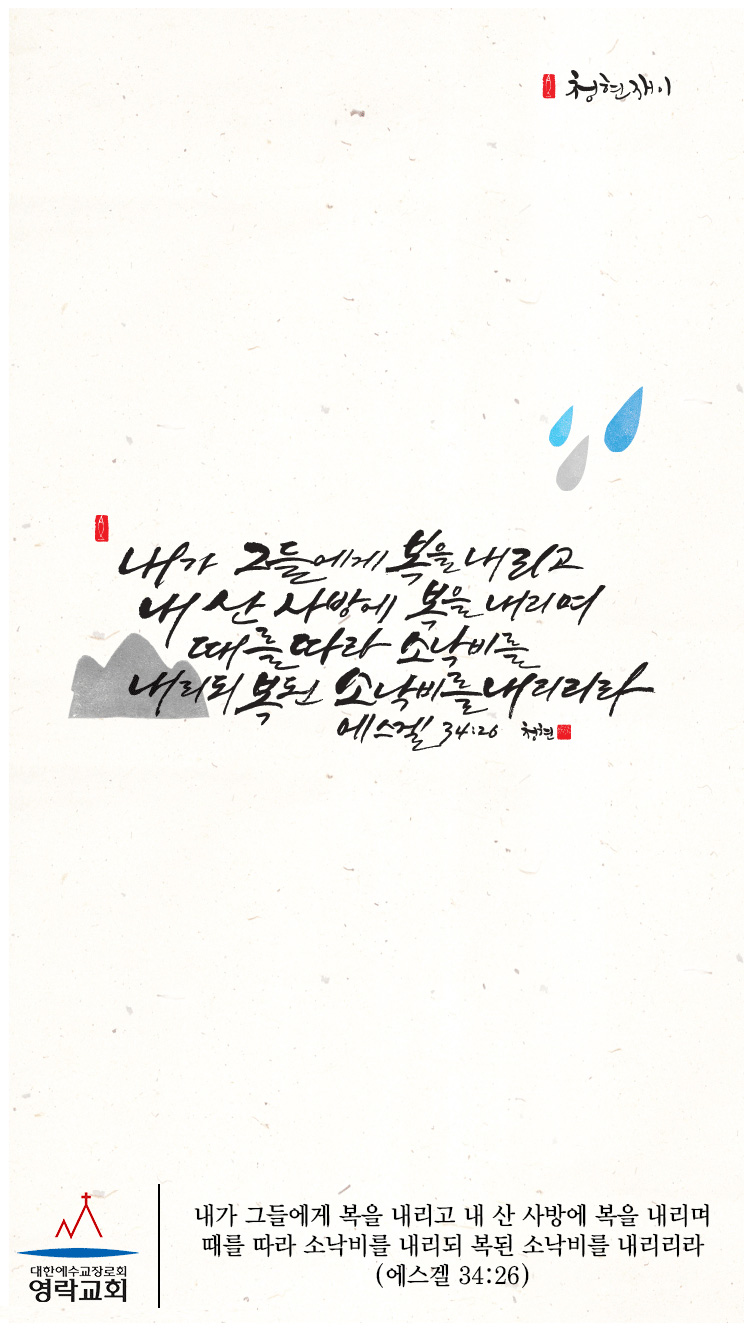 청현재이
내가 그들에게 복을 내리고
내 산 사방에 복을 내리며
때를 따라 소낙비를
내리되 복된 소낙비를 내리리라
에스겔 34:26 청현
대한예수교장로회
영락교회
내가 그들에게 복을 내리고 내 산 사방에 복을 내리며
때를 따라 소낙비를 내리되 복된 소낙비를 내리리라
(에스겔 34:26)